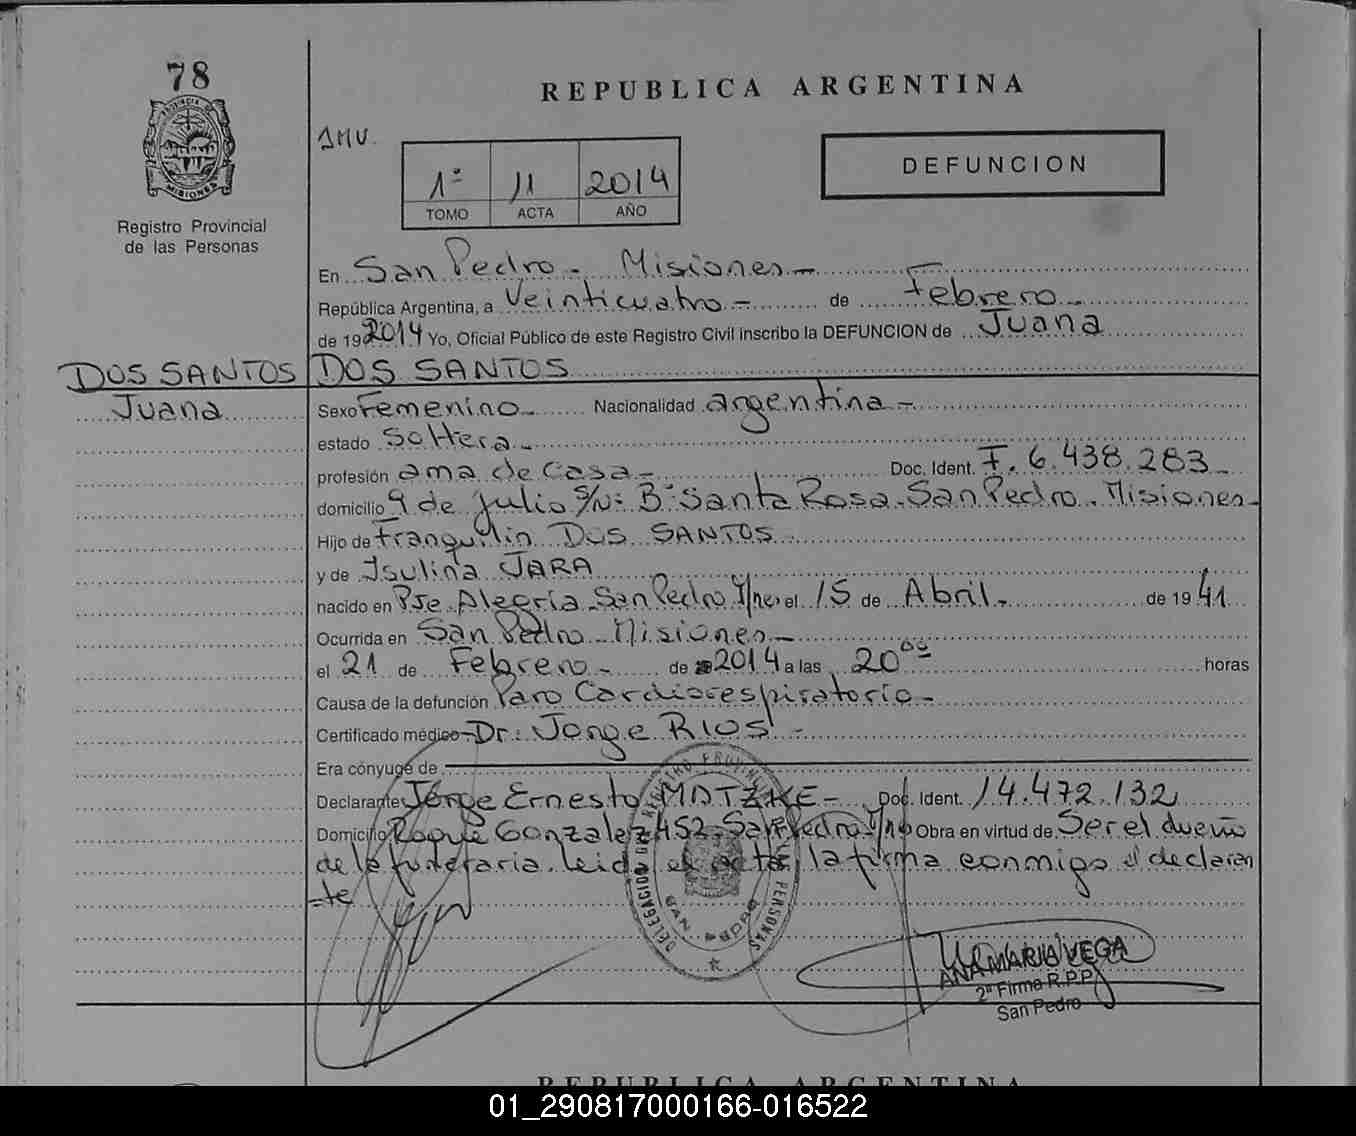 78
PROVINCIA DE
MISIONES
Registro Provincial
de las Personas
REPUBLICA ARGENTINA
1º 11 2014
TOMO ACTA AÑO
DEFUNCION
En San Pedro - Misiones -
República Argentina, a Veinticuatro - de Febrero -
de 192014 Yo, Oficial Público de este Registro Civil inscribo la DEFUNCION de Juana
DOS SANTOS DOS SANTOS
Juana Sexo Femenino - Nacionalidad argentina -
estado Soltera -
profesión ama de casa - Doc. Ident. F. 6.438.283 -
domicilio 9 de Julio S/N: Bº Santa Rosa - San Pedro - Misiones -
Hijo de Franquilin DOS SANTOS
y de Isulina JARA
nacido en Pje. Alegria - San Pedro Mnes el 15 de Abril - de 19 41
Ocurrida en San Pedro - Misiones -
el 21 de Febrero - de 2014 a las 20 00 horas
Causa de la defunción Paro Cardiorespiratorio -
Certificado médico Dr: Jorge RIOS -
Era cónyuge de
Declarante Jorge Ernesto MATZKE - Doc. Ident. 14.472.132
Domicilio Roque Gonzalez 452 - San Pedro Mnes Obra en virtud de Ser el dueño
de la funeraria. Leida el acta, la firma conmigo el declaran
-te
REGISTRO PROVINCIAL DE LAS PERSONAS
DELEGACION
SAN PEDRO
ANA MARIA VEGA
2º Firma R.P.P.
San Pedro
REPUBLICA ARGENTINA
01_290817000166-016522